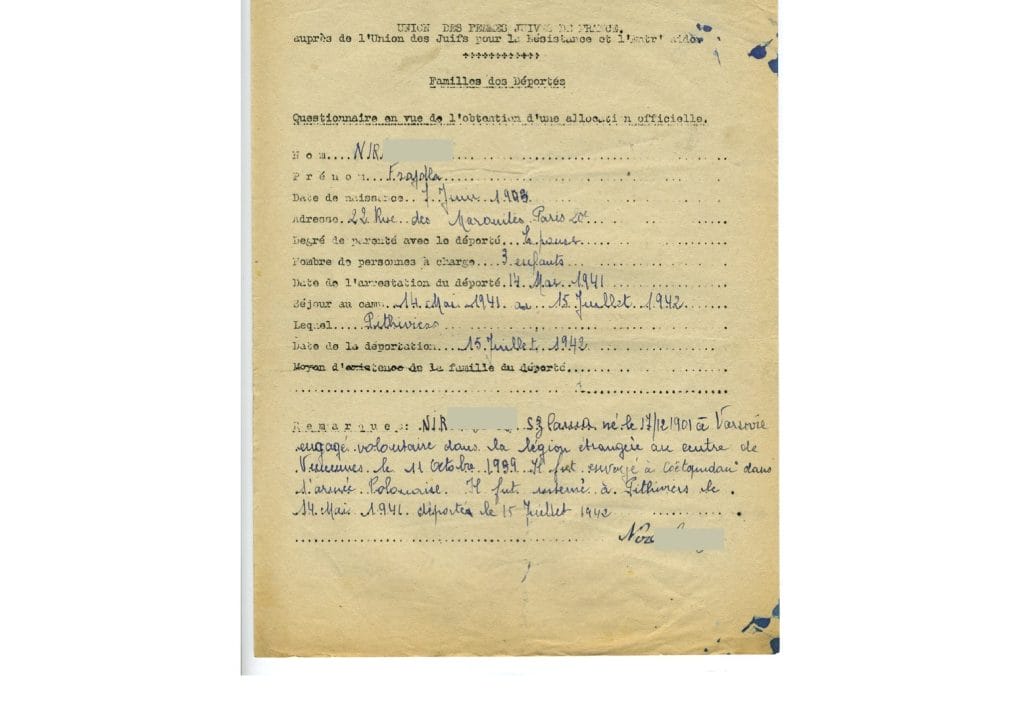 UNION DES FEMMES JUIVES DE FRANCE.
auprès de l'Union des Juifs pour la Résistance et l'Entr'aide
+++++++++++
Familles des Déportés
Questionnaire en vue de l'obtention d'une allocation officielle.
Nom....NIR
Prénom....Frajdla
Date de naissance..7 Juin 1903
Adresse.22 Rue des Maronites Paris 20e
Degré de parenté avec le déporté...Epouse
Nombre de personnes à charge....3 enfants
Date de l'arrestation du déporté.14 Mai 1941
Séjour au camp..14 Mai 1941 au 15 Juillet 1942
Lequel....Pithiviers
Date de la déportation....15 Juillet 1942
Moyen d'existence de la famille du déporté.
Remarques: NIR né le 17/12 1901 à Varsovie
engagé volontaire dans la légion étrangère au centre de
Vincennes le 11 Octobre 1939 Il fut envoyé à Coëtquidan dans
l'armée Polonaise. Il fut interné à Pithiviers le
14 Mai 1941 déporté le 15 Juillet 1942